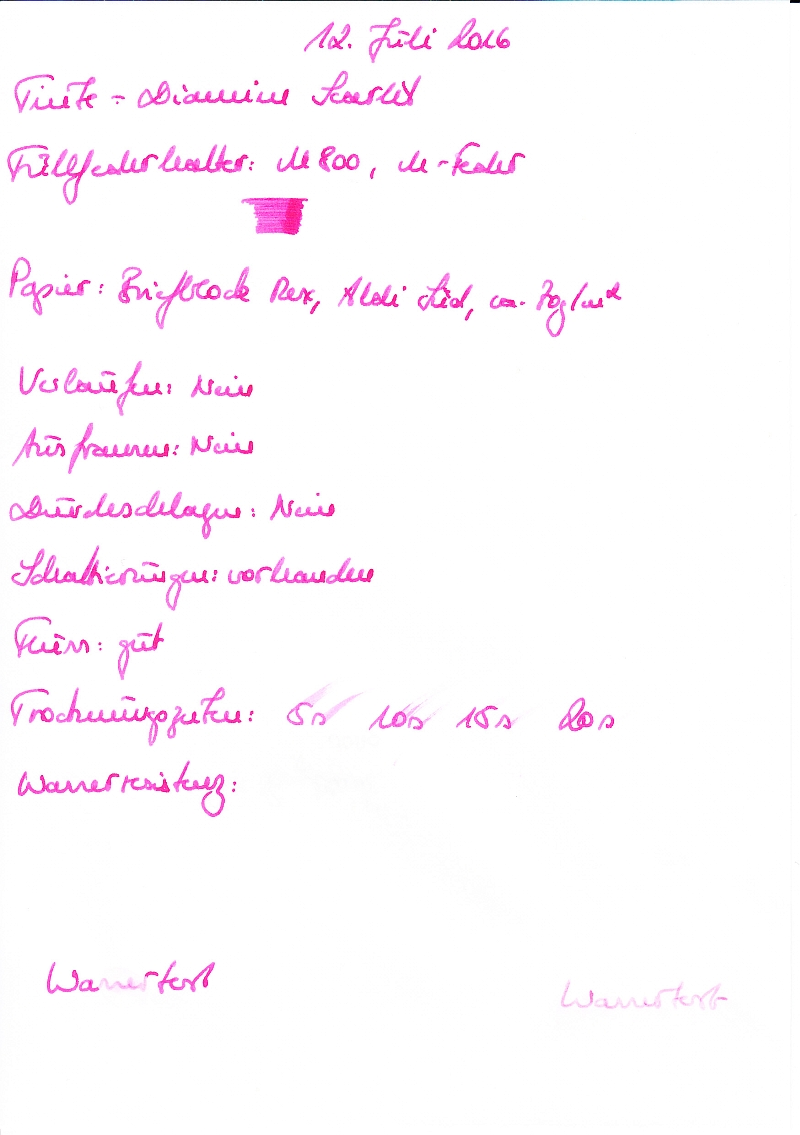 12. Juli 2016
Tinte - Diamine Scarlet
Füllfederhalter: M 800, M-Feder
Papier: Briefblock Rex, Aldi Süd, ca. 70g/m²
Verlaufen: Nein
Ausfransen: Nein
Durchschlagen: Nein
Schattierungen: vorhanden
Fluss: gut
Trocknungszeiten: 5s 10s 15s 20s
Wasserresistenz:
Wassertest Wassertest